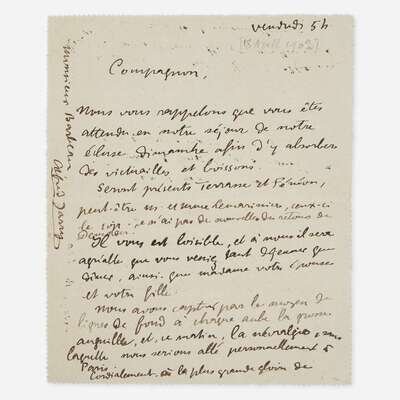 vendredi 5h
[18 Avril 1902]
Compagnon,
Nous vous rappelons que vous êtes
attendu en notre séjour de notre
écluse dimanche afin d'y absorber
des victuailles et boissons.
Seront présents Terrasse et Fénéon,
peut-être m. et mme Demarnier, ceux-ci
le soir. Je n'ai pas de nouvelles du retour de
Demolder.
Il vous est loisible, et à nous il sera
agréable que vous veniez tant déjeuner que
dîner, ainsi que madame votre épouse
et votre fille.
Nous avons capturé par le moyen de
lignes de fond à chaque aube la grosse
anguille, et, ce matin, la névralgie, sans
laquelle nous serions allé personnellement à
Paris.
Cordialement, à la plus grande gloire de
Monsieur
Alfred Jarry